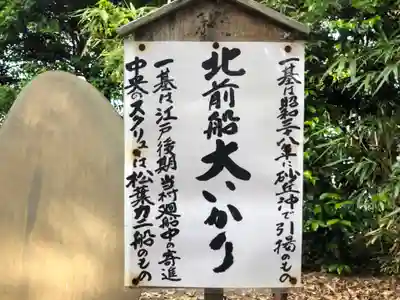 一基は昭和三十八年に砂丘沖で引揚のもの
北前船大いかり
一基は江戸後期当村廻船中の寄進
中央のスクリューは松葉力二船のもの